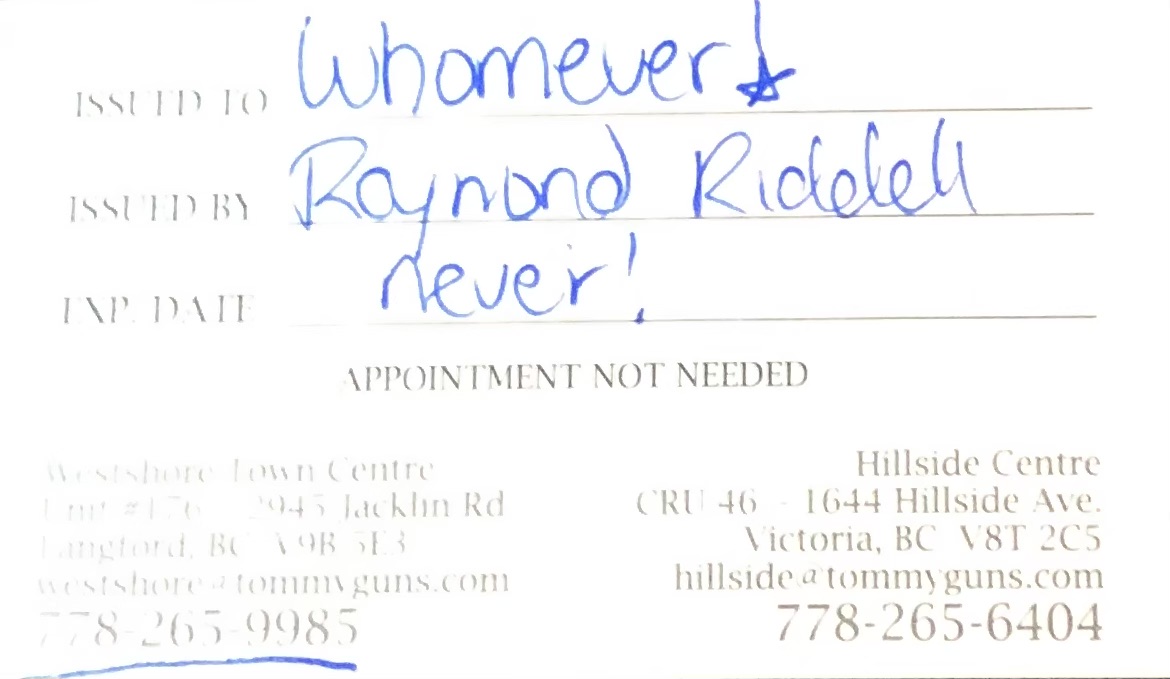 ISSUED TO Whomever!
ISSUED BY Raymond Riddell
EXP. DATE never!
APPOINTMENT NOT NEEDED
Westshore Town Centre
Unit #176 - 2945 Jacklin Rd
Langford, BC V9B 5E3
westshore@tommyguns.com
778-265-9985
Hillside Centre
CRU 46 - 1644 Hillside Ave.
Victoria, BC V8T 2C5
hillside@tommyguns.com
778-265-6404